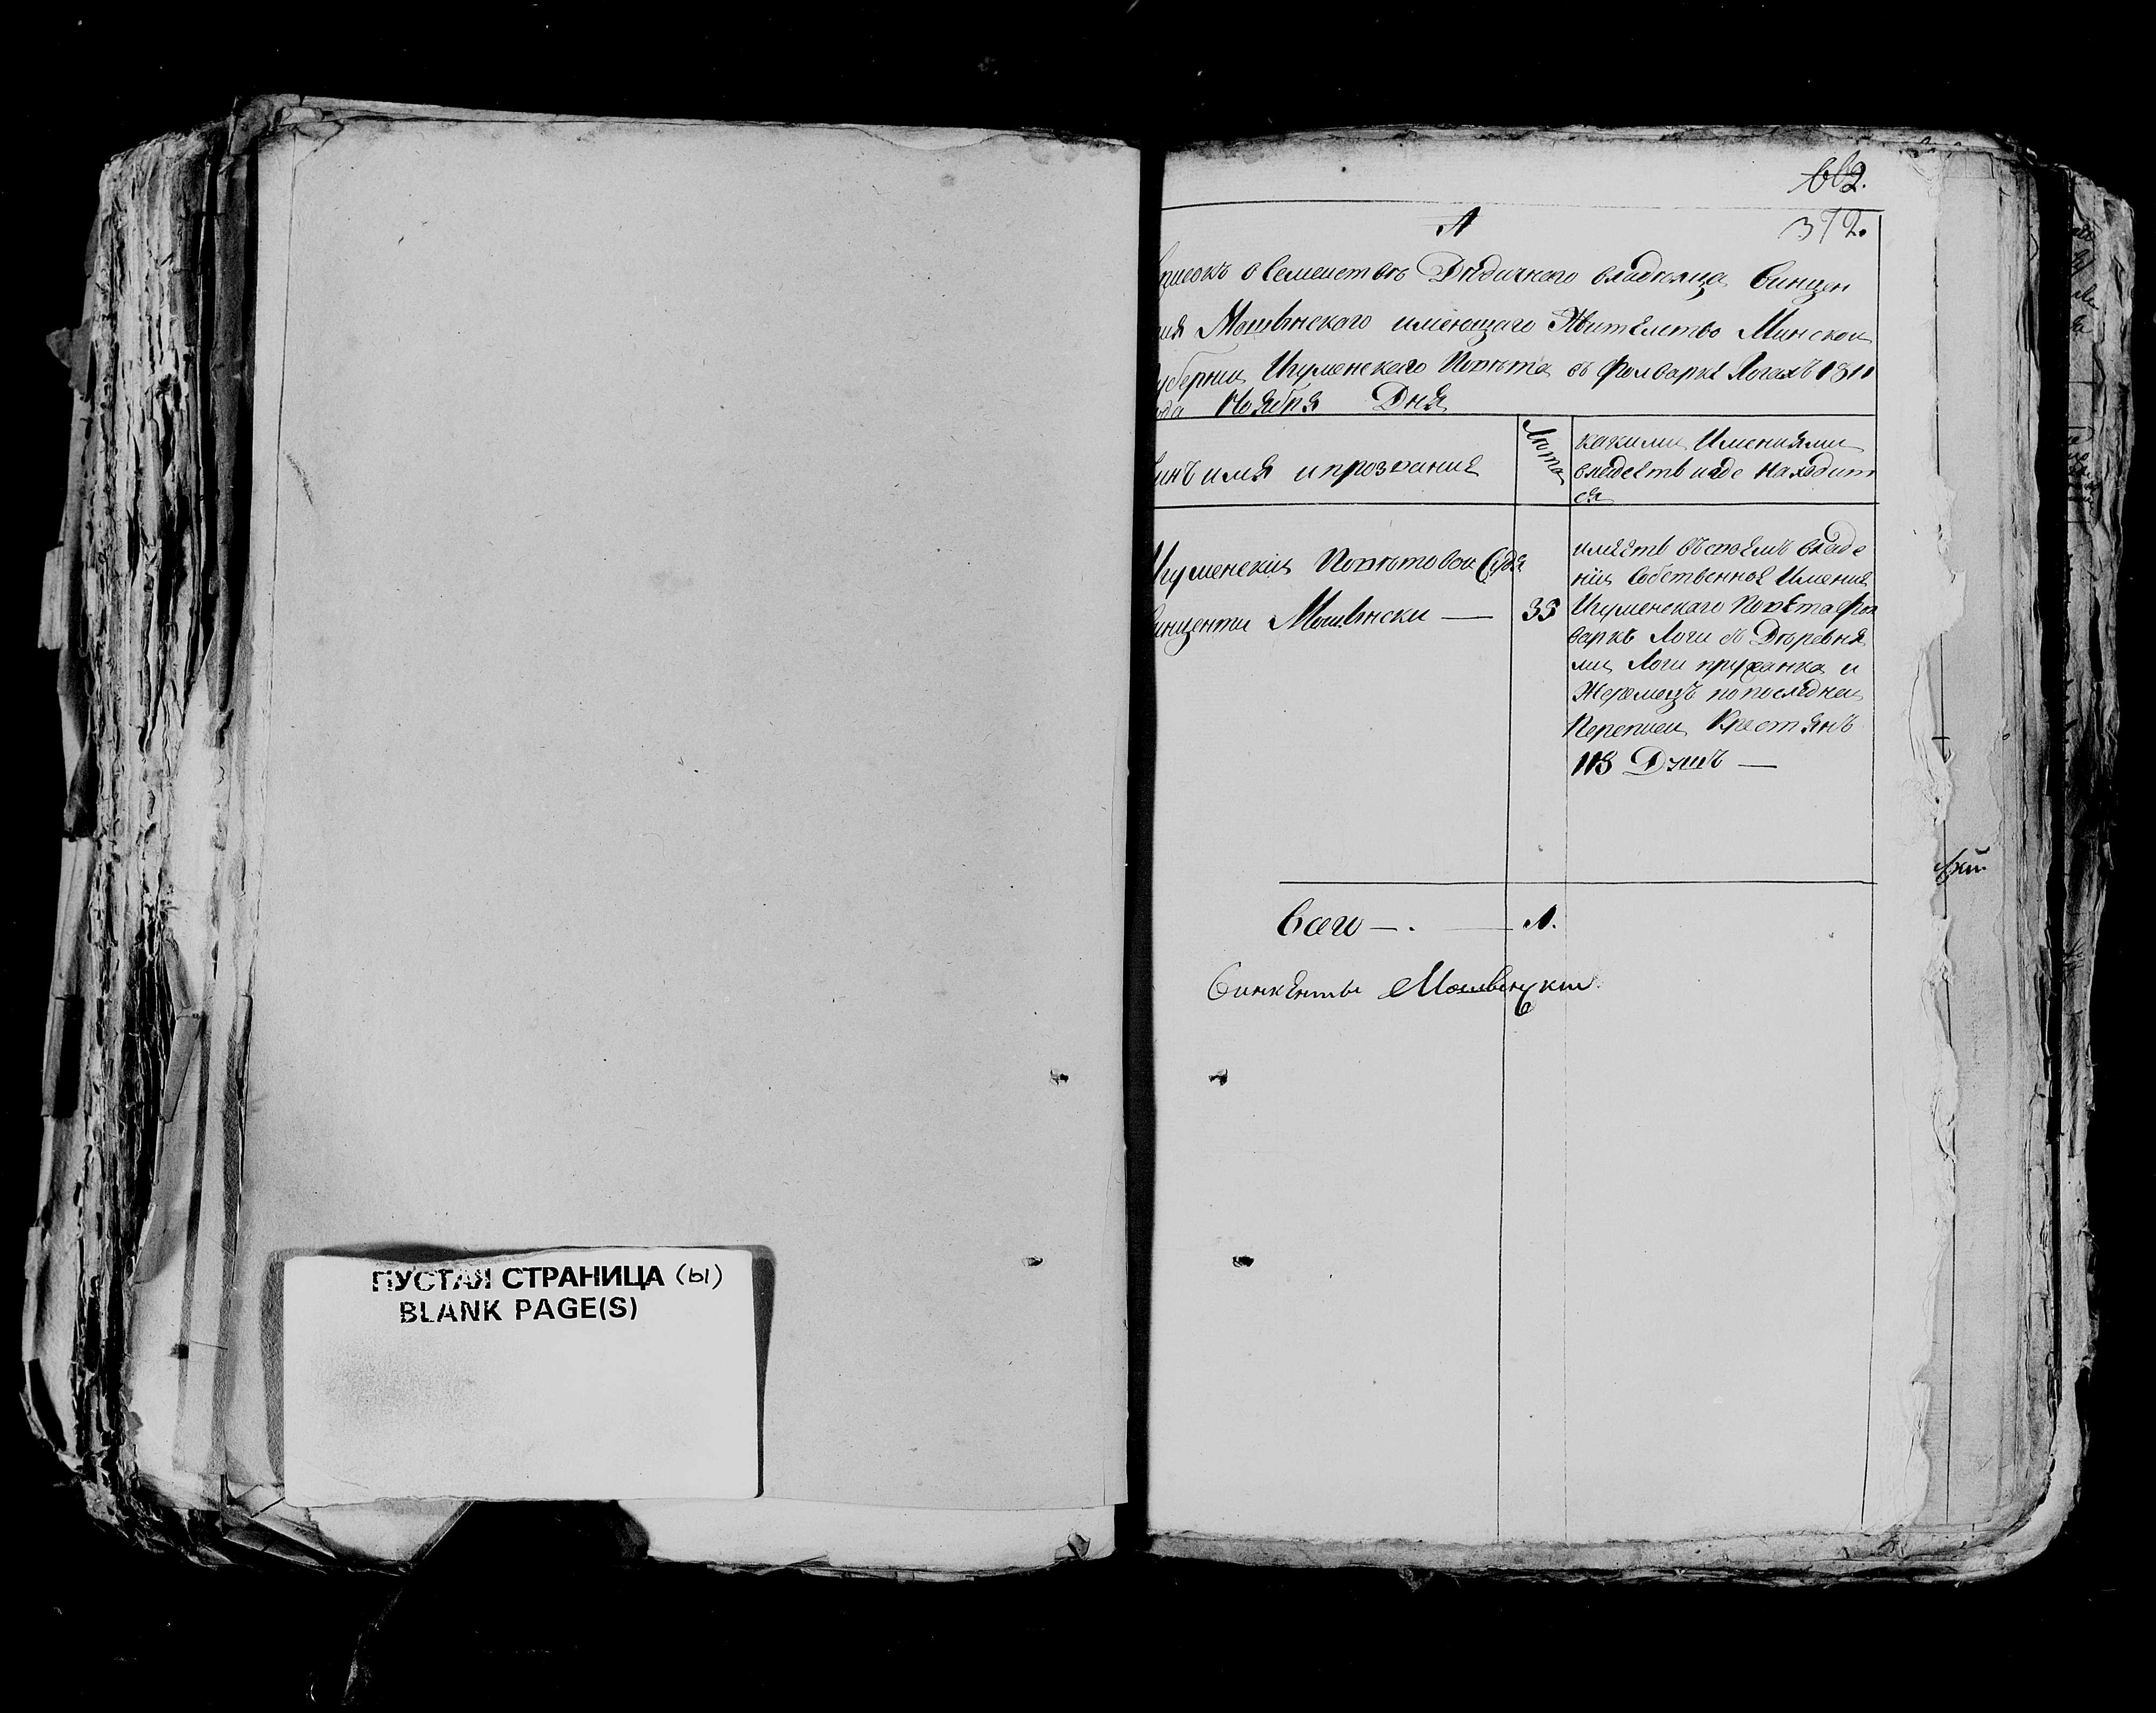 ПУСТАЯ СТРАНИЦА (ы)
BLANK PAGE(S)
662.
372.
1
Списокъ о Семействѣ Дѣдичнаго владѣльца Винцен
Мошвинскаго имеющаго Жителство Минской
губернии Игуменскаго Повѣта въ Фолваркѣ Логахъ 1811
года Ноября Дня
Чинъ имя и прозвание
Лѣта
какими Имениями
владеетъ и где находит
ся
Игуменский Повѣтовой Судя
Винценти Мошвински —
33
имеетъ въ своемъ владе
нии Собственное Имение
Игуменскаго Повета фол
варкъ Логи съ Деревня
ми Логи и
по последней
Переписи Крестянъ
113 Душъ —
Всего — . — 1.
Винкенты Мошвинский